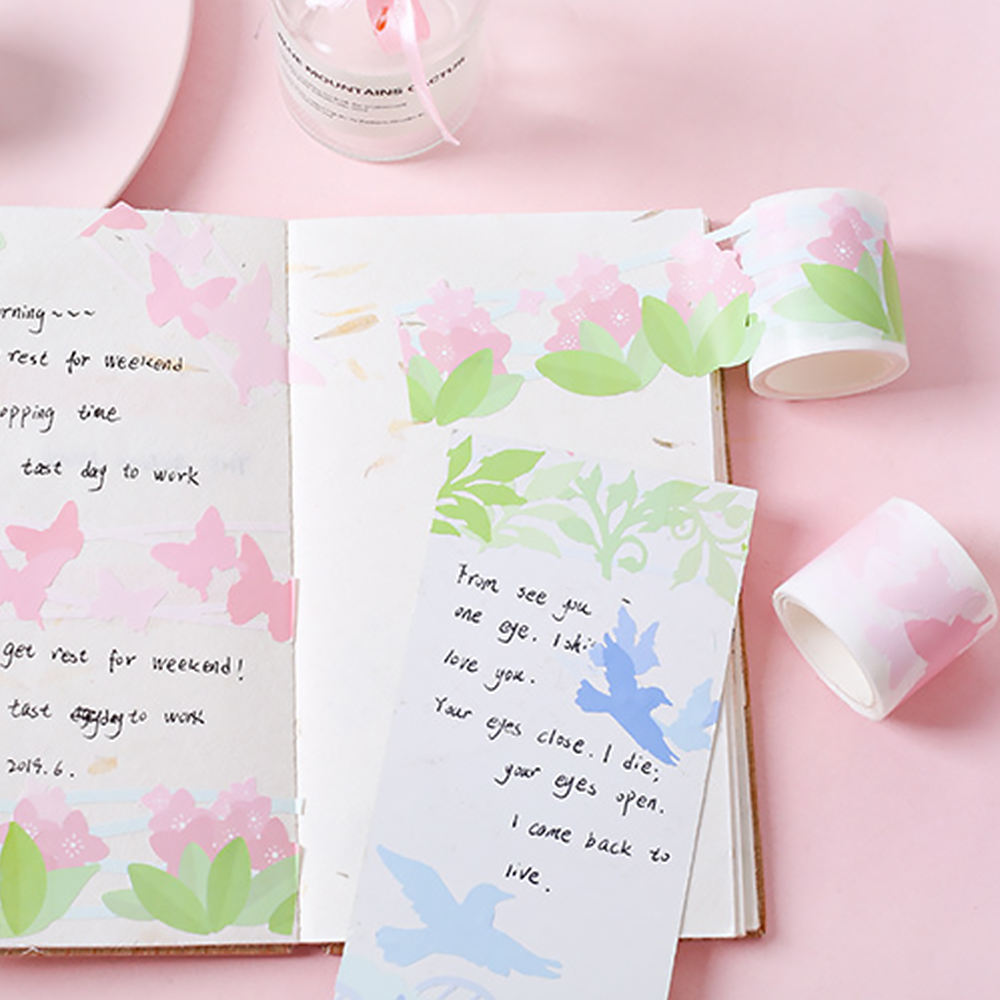 MOUNTAINS
rning~~~
rest for weekend
opping time
tast day to work
get rest for weekend!
tast to work
2019.6.
From see you
one eye. I
love you.
Your eyes close. I die;
your eyes open.
I come back to
live.